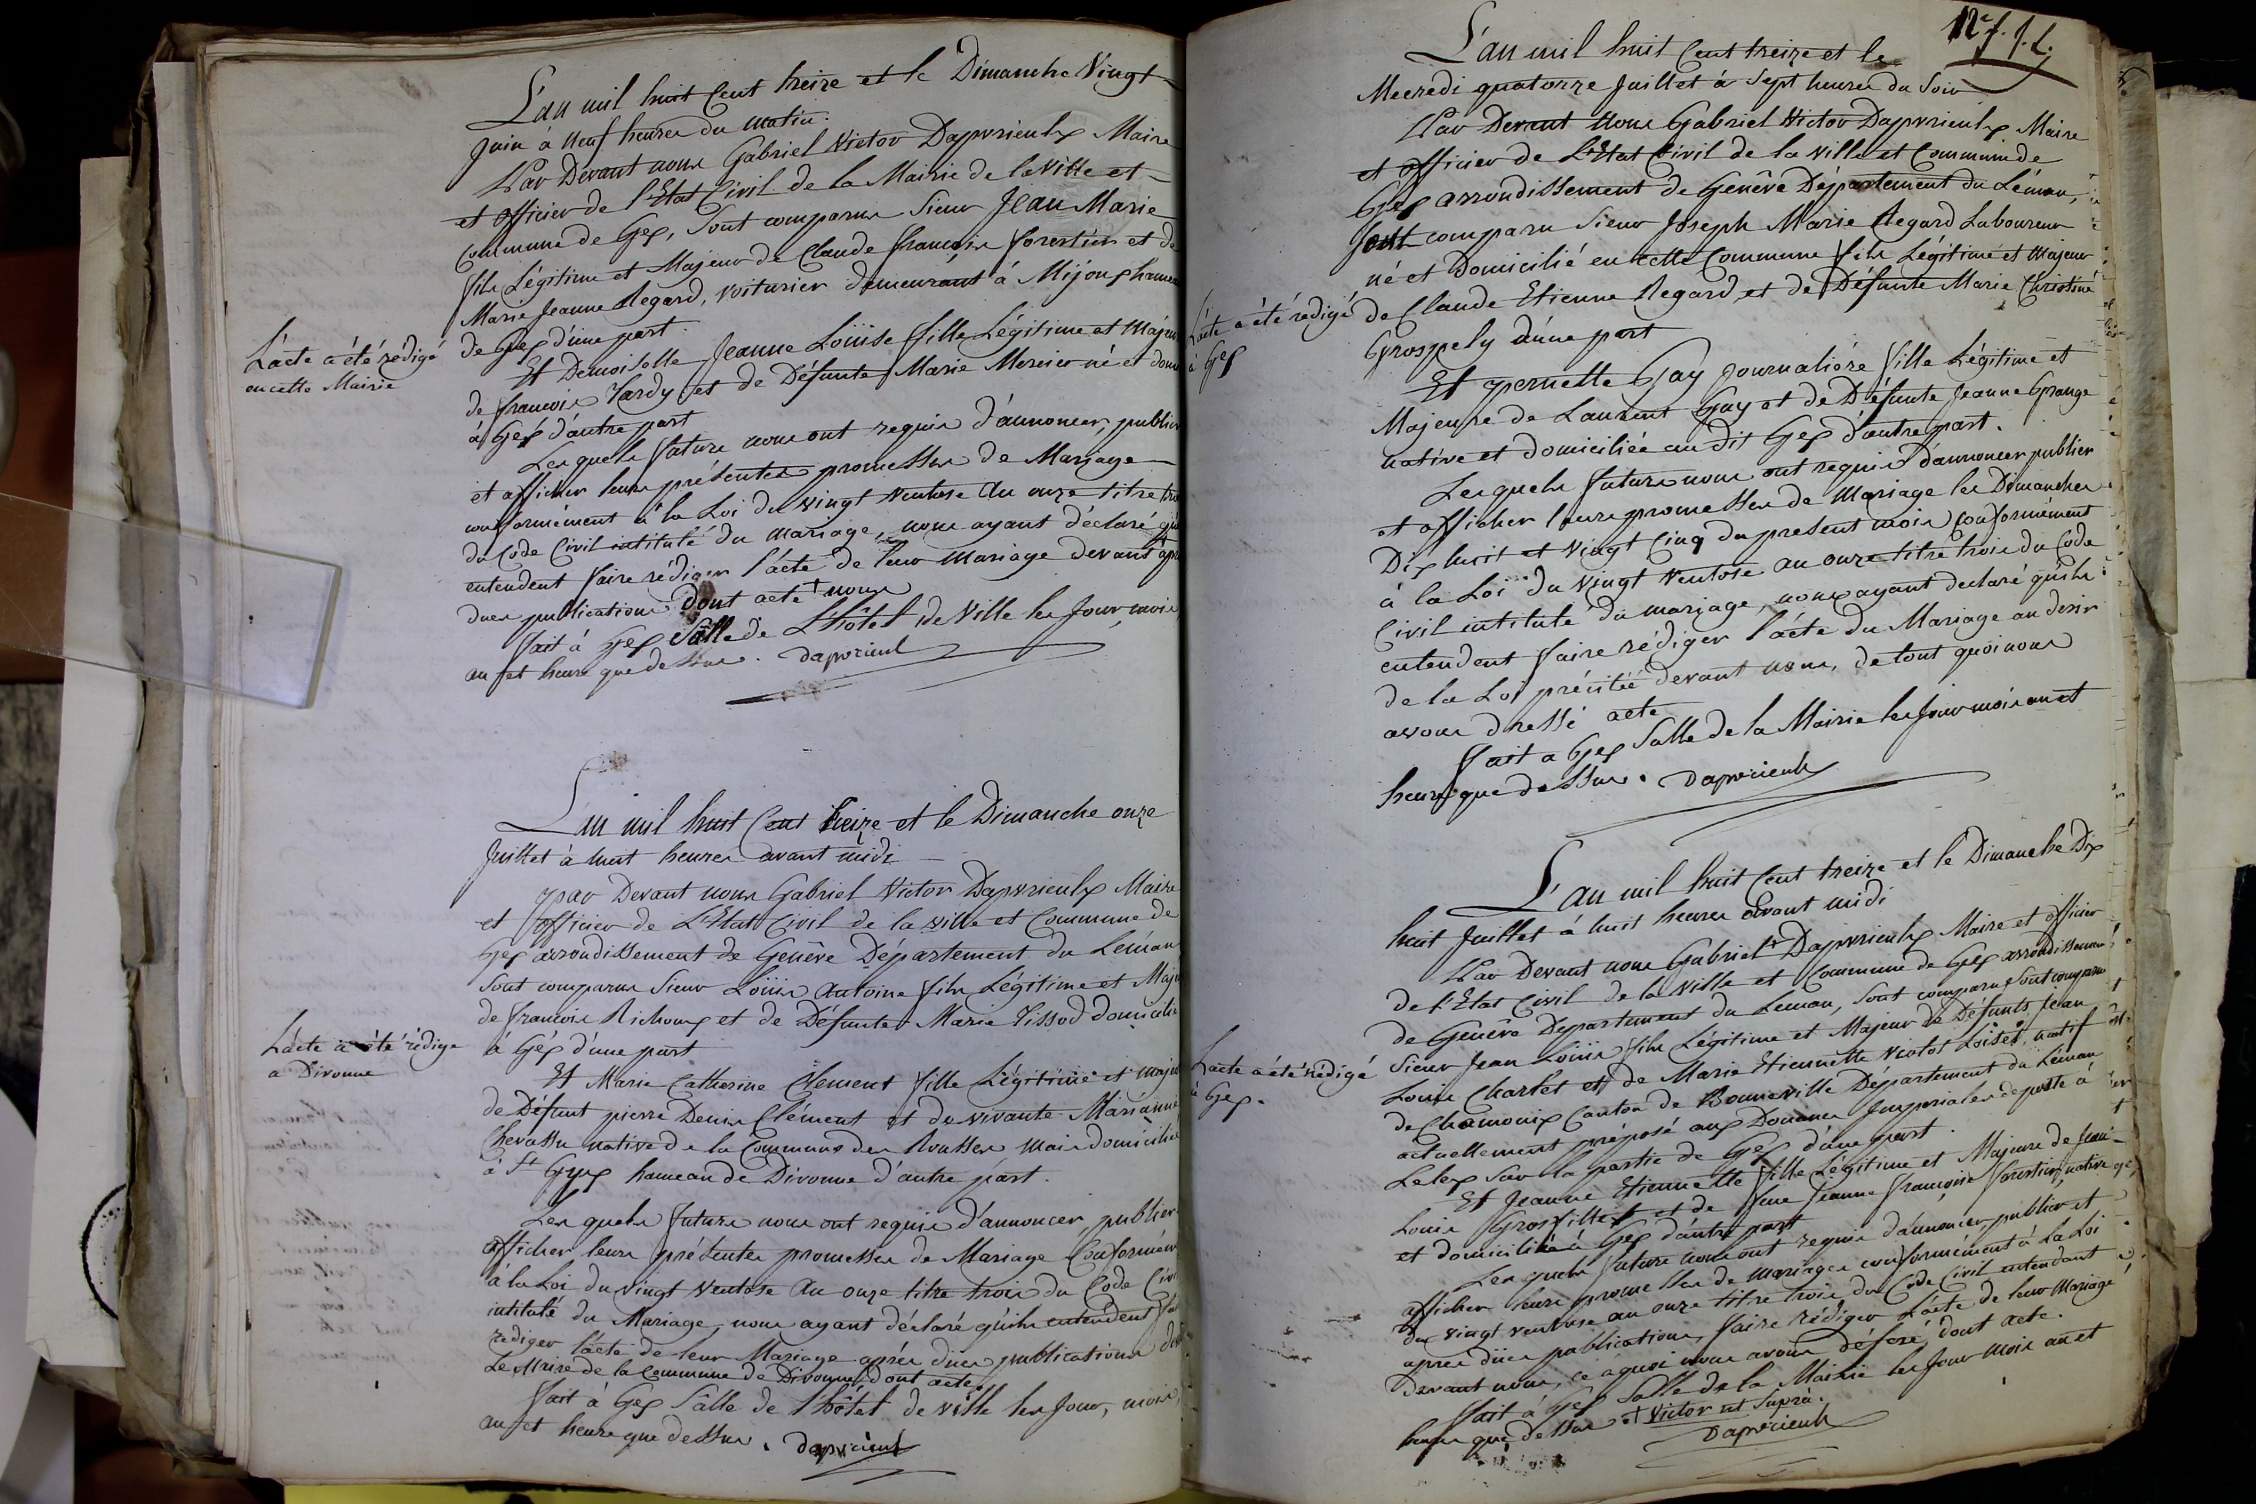 L'an mil huit Cent treize et le Dimanche Vingt
Juin à Neuf heures du matin.
Par Devant nous Gabriel Victor Dapvrieulx Maire
et officier de l'Etat Civil de la Mairie de la Ville et
Commune de Gex, Sont comparus Sieur Jean Marie
fils Légitime et Majeur de Claude francois forestier et de
Marie Jeanne Regard, voiturier demeurant à Mijoux hameau
de Gex d'une part.
Et Demoiselle Jeanne Loüise fille Légitime et Majeure
de francois Tardy et de Défunte Marie Mercier né et domi
à Gex d'autre part
Les quels futurs nous ont requis d'annoncer, publier
et afficher leurs présentes promesses de Mariage
conformément à la Loi du vingt Ventose An onze titre trois
du Code Civil intitulé du mariage, nous ayant déclaré qu'ils
entendent faire rédiger l'acte de leur Mariage devant après
dues publications dont acte + nous
fait à Gex Salle de L'hôtel de Ville les Jour, mois
an et heure que dessus. Dapvrieul
L'acte a été rédigé
en cette Mairie
L'an mil huit Cent treize et le Dimanche onze
Juillet à huit heures avant midi
par Devant nous Gabriel Victor Dapvrieulx Maire
et officier de L'Etat Civil de la ville et Commune de
Gex arrondissement de Genêve Département du Léman
Sont comparus Sieur Loüis Antoine fils Légitime et Maje
de francois Richoux et de Défunte Marie Tissod domicilié
à Gex d'une part
Et Marie Catherine Clement fille Légitime et maje
de Défunt pierre Denis Clément et de vivante Marianne
Chevassu native de la Commune des Rousses mais domiciliée
à St Gyx hameau de Divonne d'autre part.
Les quels futurs nous ont requis d'annoncer, publier
afficher leurs présentes promesses de Mariage Conformém
à la Loi du vingt Ventose An onze titre trois du Code Civil
intitulé du Mariage, nous ayant déclaré qu'ils entendent fai
rediger l'acte de leur Mariage après dües publications deva
Le Maire de la Commune de Divonne, dont acte
fait à Gex Sâlle de l'hôtel de ville les Jour, mois,
an et heure que dessus. Dapvrieul
L'acte a été rédigé
a Divonne
12e f. J. L.
L'an mil huit Cent treize et le
Mecredi quatorze Juillet à Sept heures du Soir
Par Devant Nous Gabriel Victor Dapvrieulx Maire
et officier de L'Etat Civil de la Ville et Commune de
Gex arrondissement de Genêve Département du Léman,
Sont comparu Sieur Joseph Marie Regard Laboureur
né et Domicilié en cette Commune fils Légitime et Majeur
de Claude Etienne Regard et de Défunte Marie Christine
Grospely d'une part
Et pernette Gay Journalière fille Légitime et
Majeure de Laurent Gay et de Défunte Jeanne Grange
native et domiciliée au dit Gex d'autre part.
Les quels futurs nous ont requis d'annoncer publier
et afficher leurs promesses de Mariage les Dimanches
Dix huit et Vingt Cinq du present mois Conformément
à la Loi du Vingt Ventose an onze titre trois du Code
Civil intitulé du mariage, nous ayant declaré qu'ils
entendent faire rédiger l'acte du Mariage au désir
de la Loi précitée devant nous, de tout quoi nous
avons dressé acte
fait a Gex Salle de la Mairie les Jour mois an et
heure que dessus. Dapvrieulx
L'acte a été rédigé
à Gex
L'an mil huit Cent treize et le Dimanche Dix
huit Juillet à huit heures avant midi
Par Devant nous Gabriel + Dapvrieulx Maire et officier
de l'Etat Civil de la Ville et Commune de Gex arrondissement
de Genêve Département du Leman, Sont comparus Sont comparus
Sieur Jean Loüis fils Légitime et Majeur de Défunts Jean
Louis Charlet et de Marie Etiennette Violot Loisel, natif
de Chamouix Canton de Bonneville Département du Léman
actuellement préposé aux Douanes Imperiales de poste à
Lelex Sur la partie de Gex d'une part.
Et Jeanne Etiennette fille Légitime et Majeure de Jean
Louis Grosfillex et de feue Jeanne françoise forestier, native
et domiciliée à Gex d'autre part
Les quels futurs nous ont requis d'annoncer, publier et
afficher leurs promesses de mariages conformément à la Loi
du vingt ventose an onze titre trois du Code Civil entendant
après dües publications, faire rédiger L'acte de leur Mariage
devant nous, ce a quoi nous avons déféré, dont acte.
fait à Gex Salle de la Mairie les Jour mois an et
heure que dessus + Victor ut Supra.
Dapvrieulx
L'acte a été rédigé
à Gex.